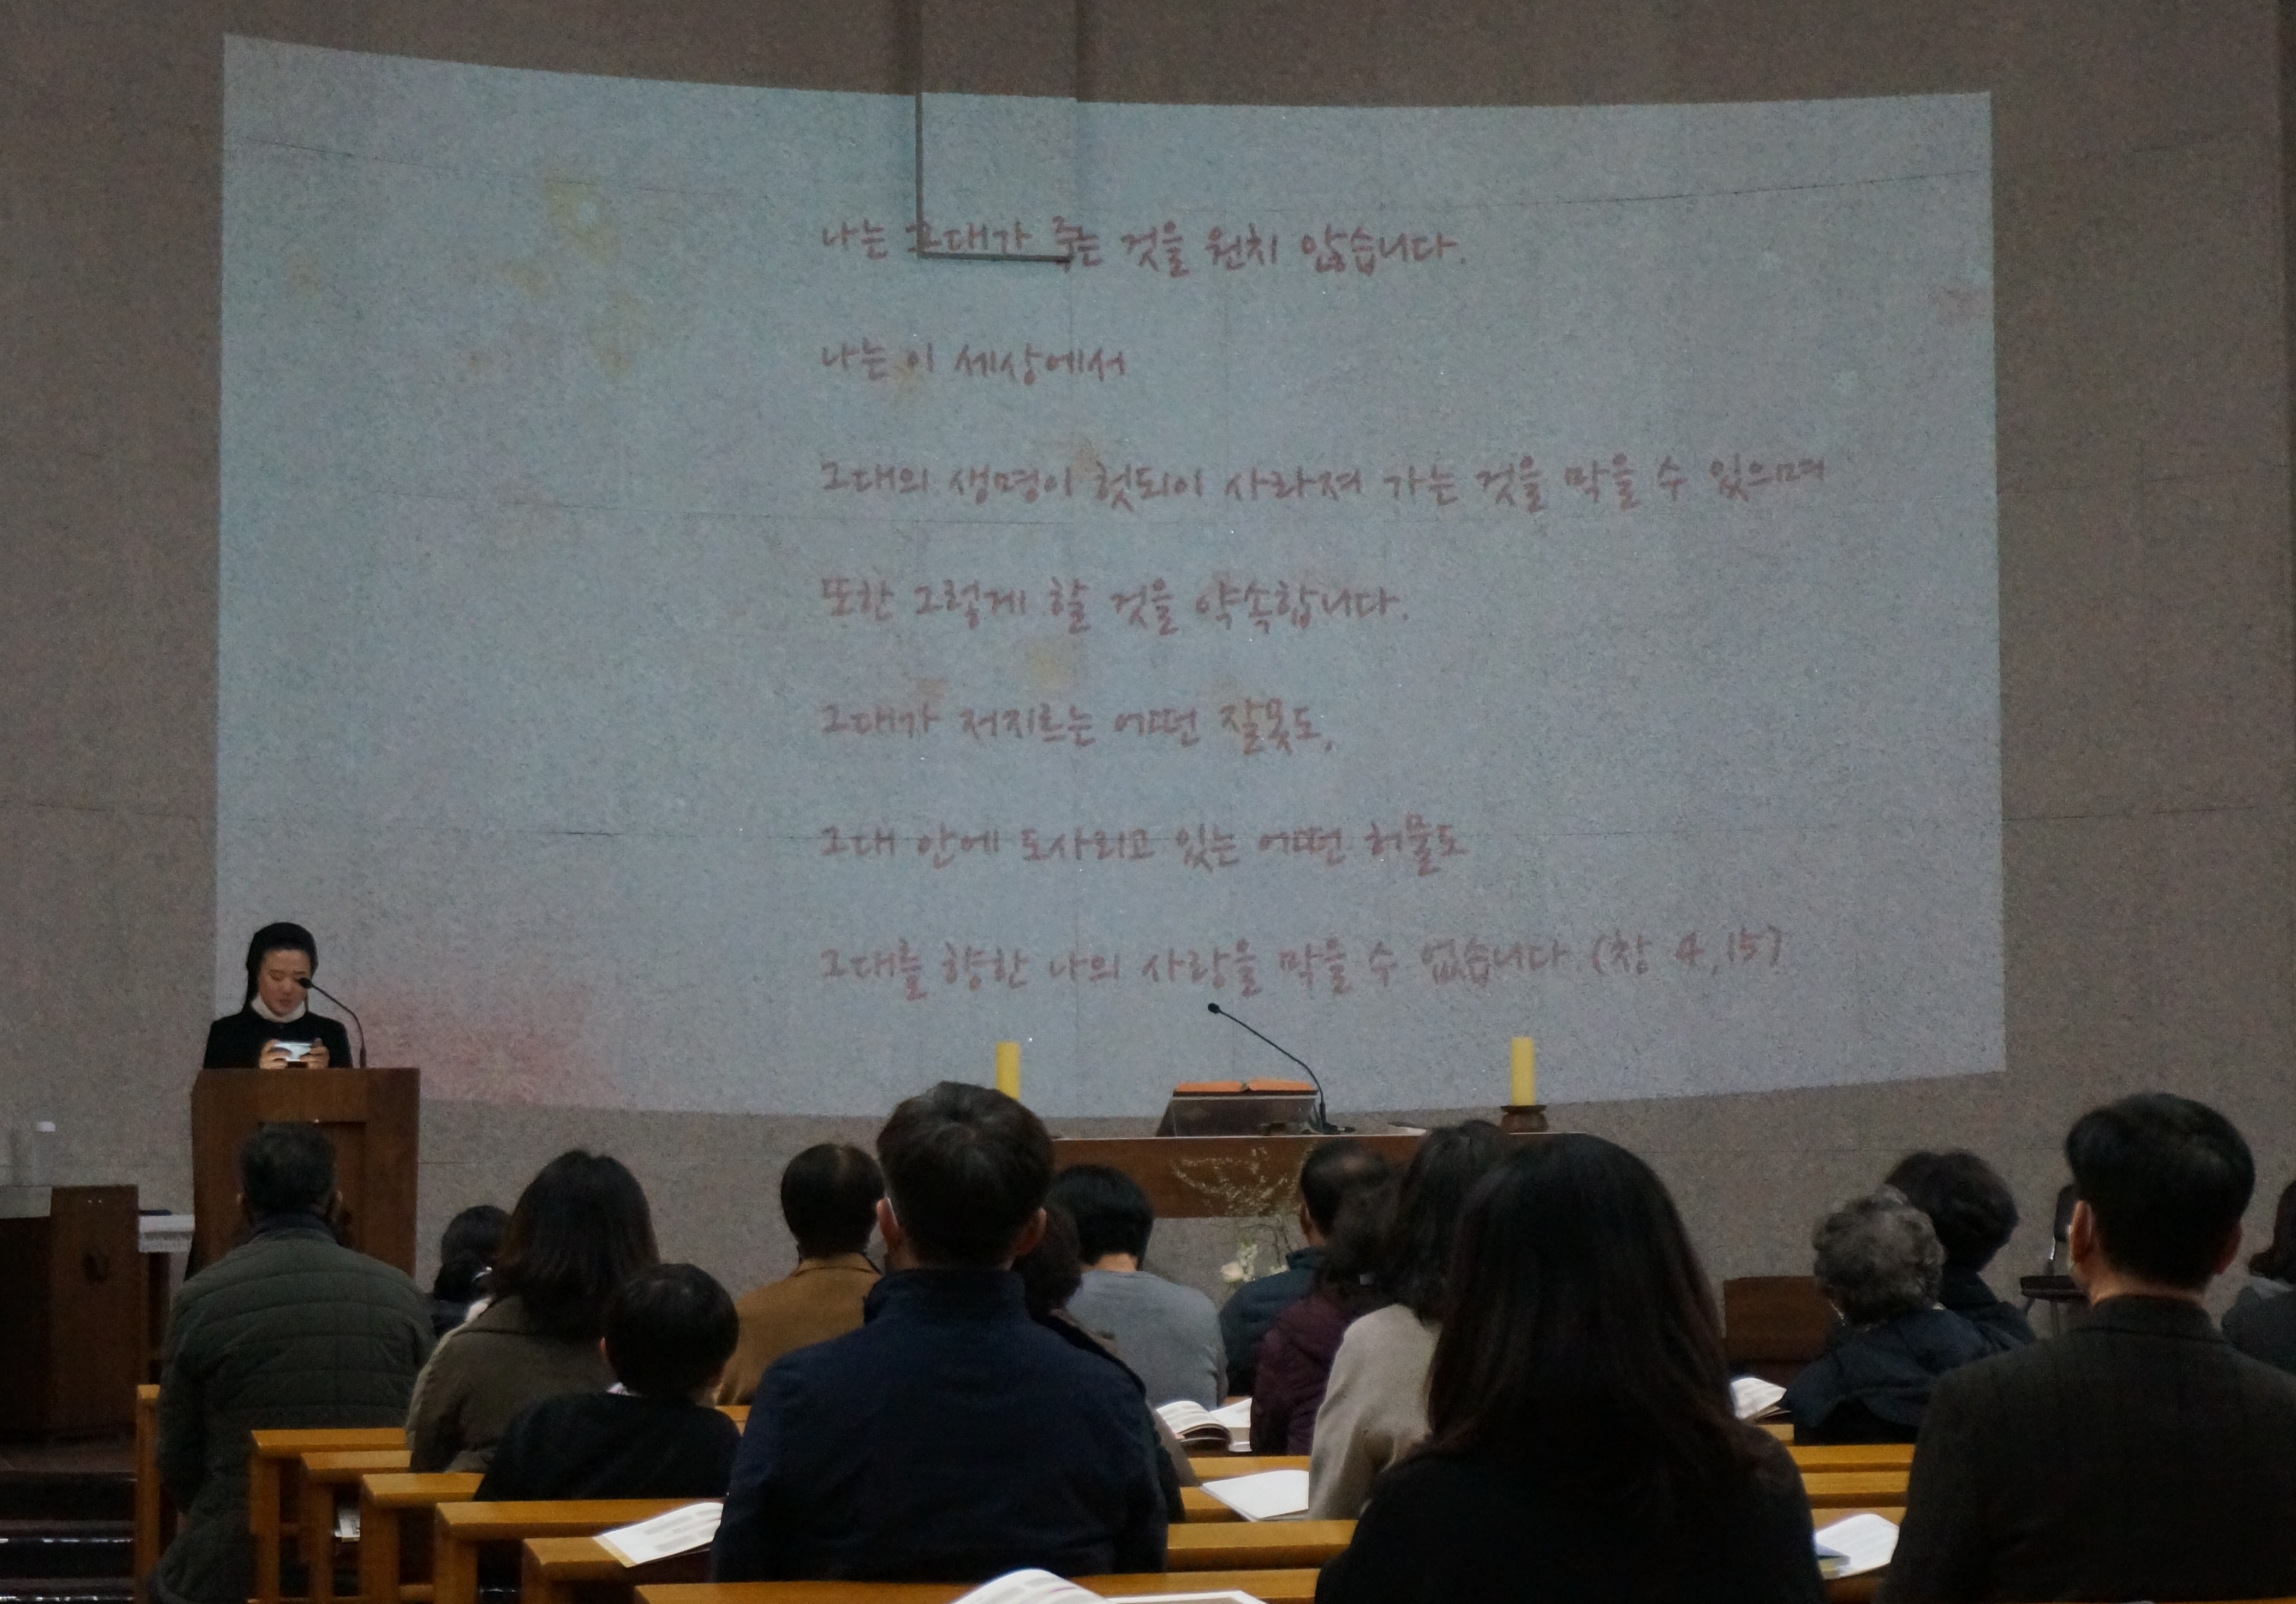 나는 그대가 죽는 것을 원치 않습니다.
나는 이 세상에서
그대의 생명이 헛되이 사라져 가는 것을 막을 수 있으며
또한 그렇게 할 것을 약속합니다.
그대가 저지르는 어떤 잘못도,
그대 안에 도사리고 있는 어떤 허물도
그대를 향한 나의 사랑을 막을 수 없습니다. (창 4,15)